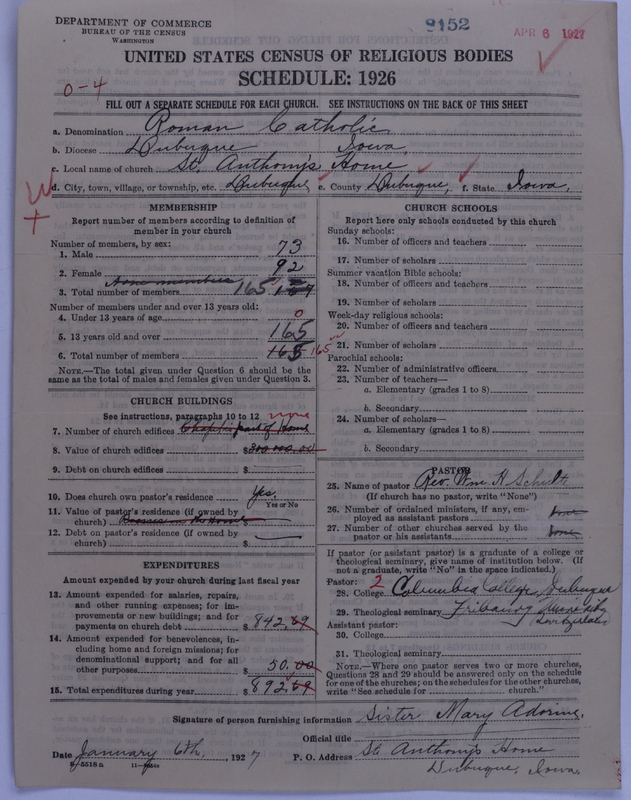 DEPARTMENT OF COMMERCE
BUREAU OF THE CENSUS
WASHINGTON
9152
APR 6 1927
UNITED STATES CENSUS OF RELIGIOUS BODIES
SCHEDULE: 1926
0-4
FILL OUT A SEPARATE SCHEDULE FOR EACH CHURCH. SEE INSTRUCTIONS ON THE BACK OF THIS SHEET
a. Denomination Roman Catholic
b. Diocese Dubuque Iowa
c. Local name of church St. Anthony's Home
d. City, town, village, or township, etc. Dubuque e. County Dubuque, f. State Iowa,
MEMBERSHIP
Report number of members according to definition of member in your church
Number of members, by sex:
1. Male 73
2. Female 92
Home members
3. Total number of members 165
Number of members under and over 13 years old:
4. Under 13 years of age 0
5. 13 years old and over 165
6. Total number of members 165 165
NOTE.—The total given under Question 6 should be the
same as the total of males and females given under Question 3.
CHURCH BUILDINGS
See instructions, paragraphs 10 to 12 none
7. Number of church edifices Chapel is part of Home
8. Value of church edifices $300 000.00
9. Debt on church edifices $
10. Does church own pastor's residence Yes,
Yes or No
11. Value of pastor's residence (if owned by
church)
12. Debt on pastor's residence (if owned by
church) $
EXPENDITURES
Amount expended by your church during last fiscal year
13. Amount expended for salaries, repairs,
and other running expenses; for im-
provements or new buildings; and for
payments on church debt $ 842.69
14. Amount expended for benevolences, in-
cluding home and foreign missions; for
denominational support; and for all
other purposes $ 50.00
15. Total expenditures during year $ 892.69
CHURCH SCHOOLS
Report here only schools conducted by this church
Sunday schools:
16. Number of officers and teachers
17. Number of scholars
Summer vacation Bible schools:
18. Number of officers and teachers
19. Number of scholars
Week-day religious schools:
20. Number of officers and teachers
21. Number of scholars
Parochial schools:
22. Number of administrative officers
23. Number of teachers—
a. Elementary (grades 1 to 8)
b. Secondary
24. Number of scholars—
a. Elementary (grades 1 to 8)
b. Secondary
PASTOR
25. Name of pastor Rev. Wm. H. Schult
(If church has no pastor, write "None")
26. Number of ordained ministers, if any, em-
ployed as assistant pastors none
27. Number of other churches served by the
pastor or his assistants none
If pastor (or assistant pastor) is a graduate of a college or
theological seminary, give name of institution below. (If
not a graduate, write "No" in the space indicated.)
Pastor: 2
28. College Columbia College, Dubuque
29. Theological seminary Fribourg
Switzerland
Assistant pastor:
30. College
31. Theological seminary
NOTE.—Where one pastor serves two or more churches,
Questions 28 and 29 should be answered only on the schedule
for one of the churches; on the schedules for the other churches,
write "See schedule for church."
Signature of person furnishing information Sister Mary Adorine,
Official title
Date January 6th, 1927 P. O. Address St. Anthony's Home
8-5518a Dubuque, Iowa.